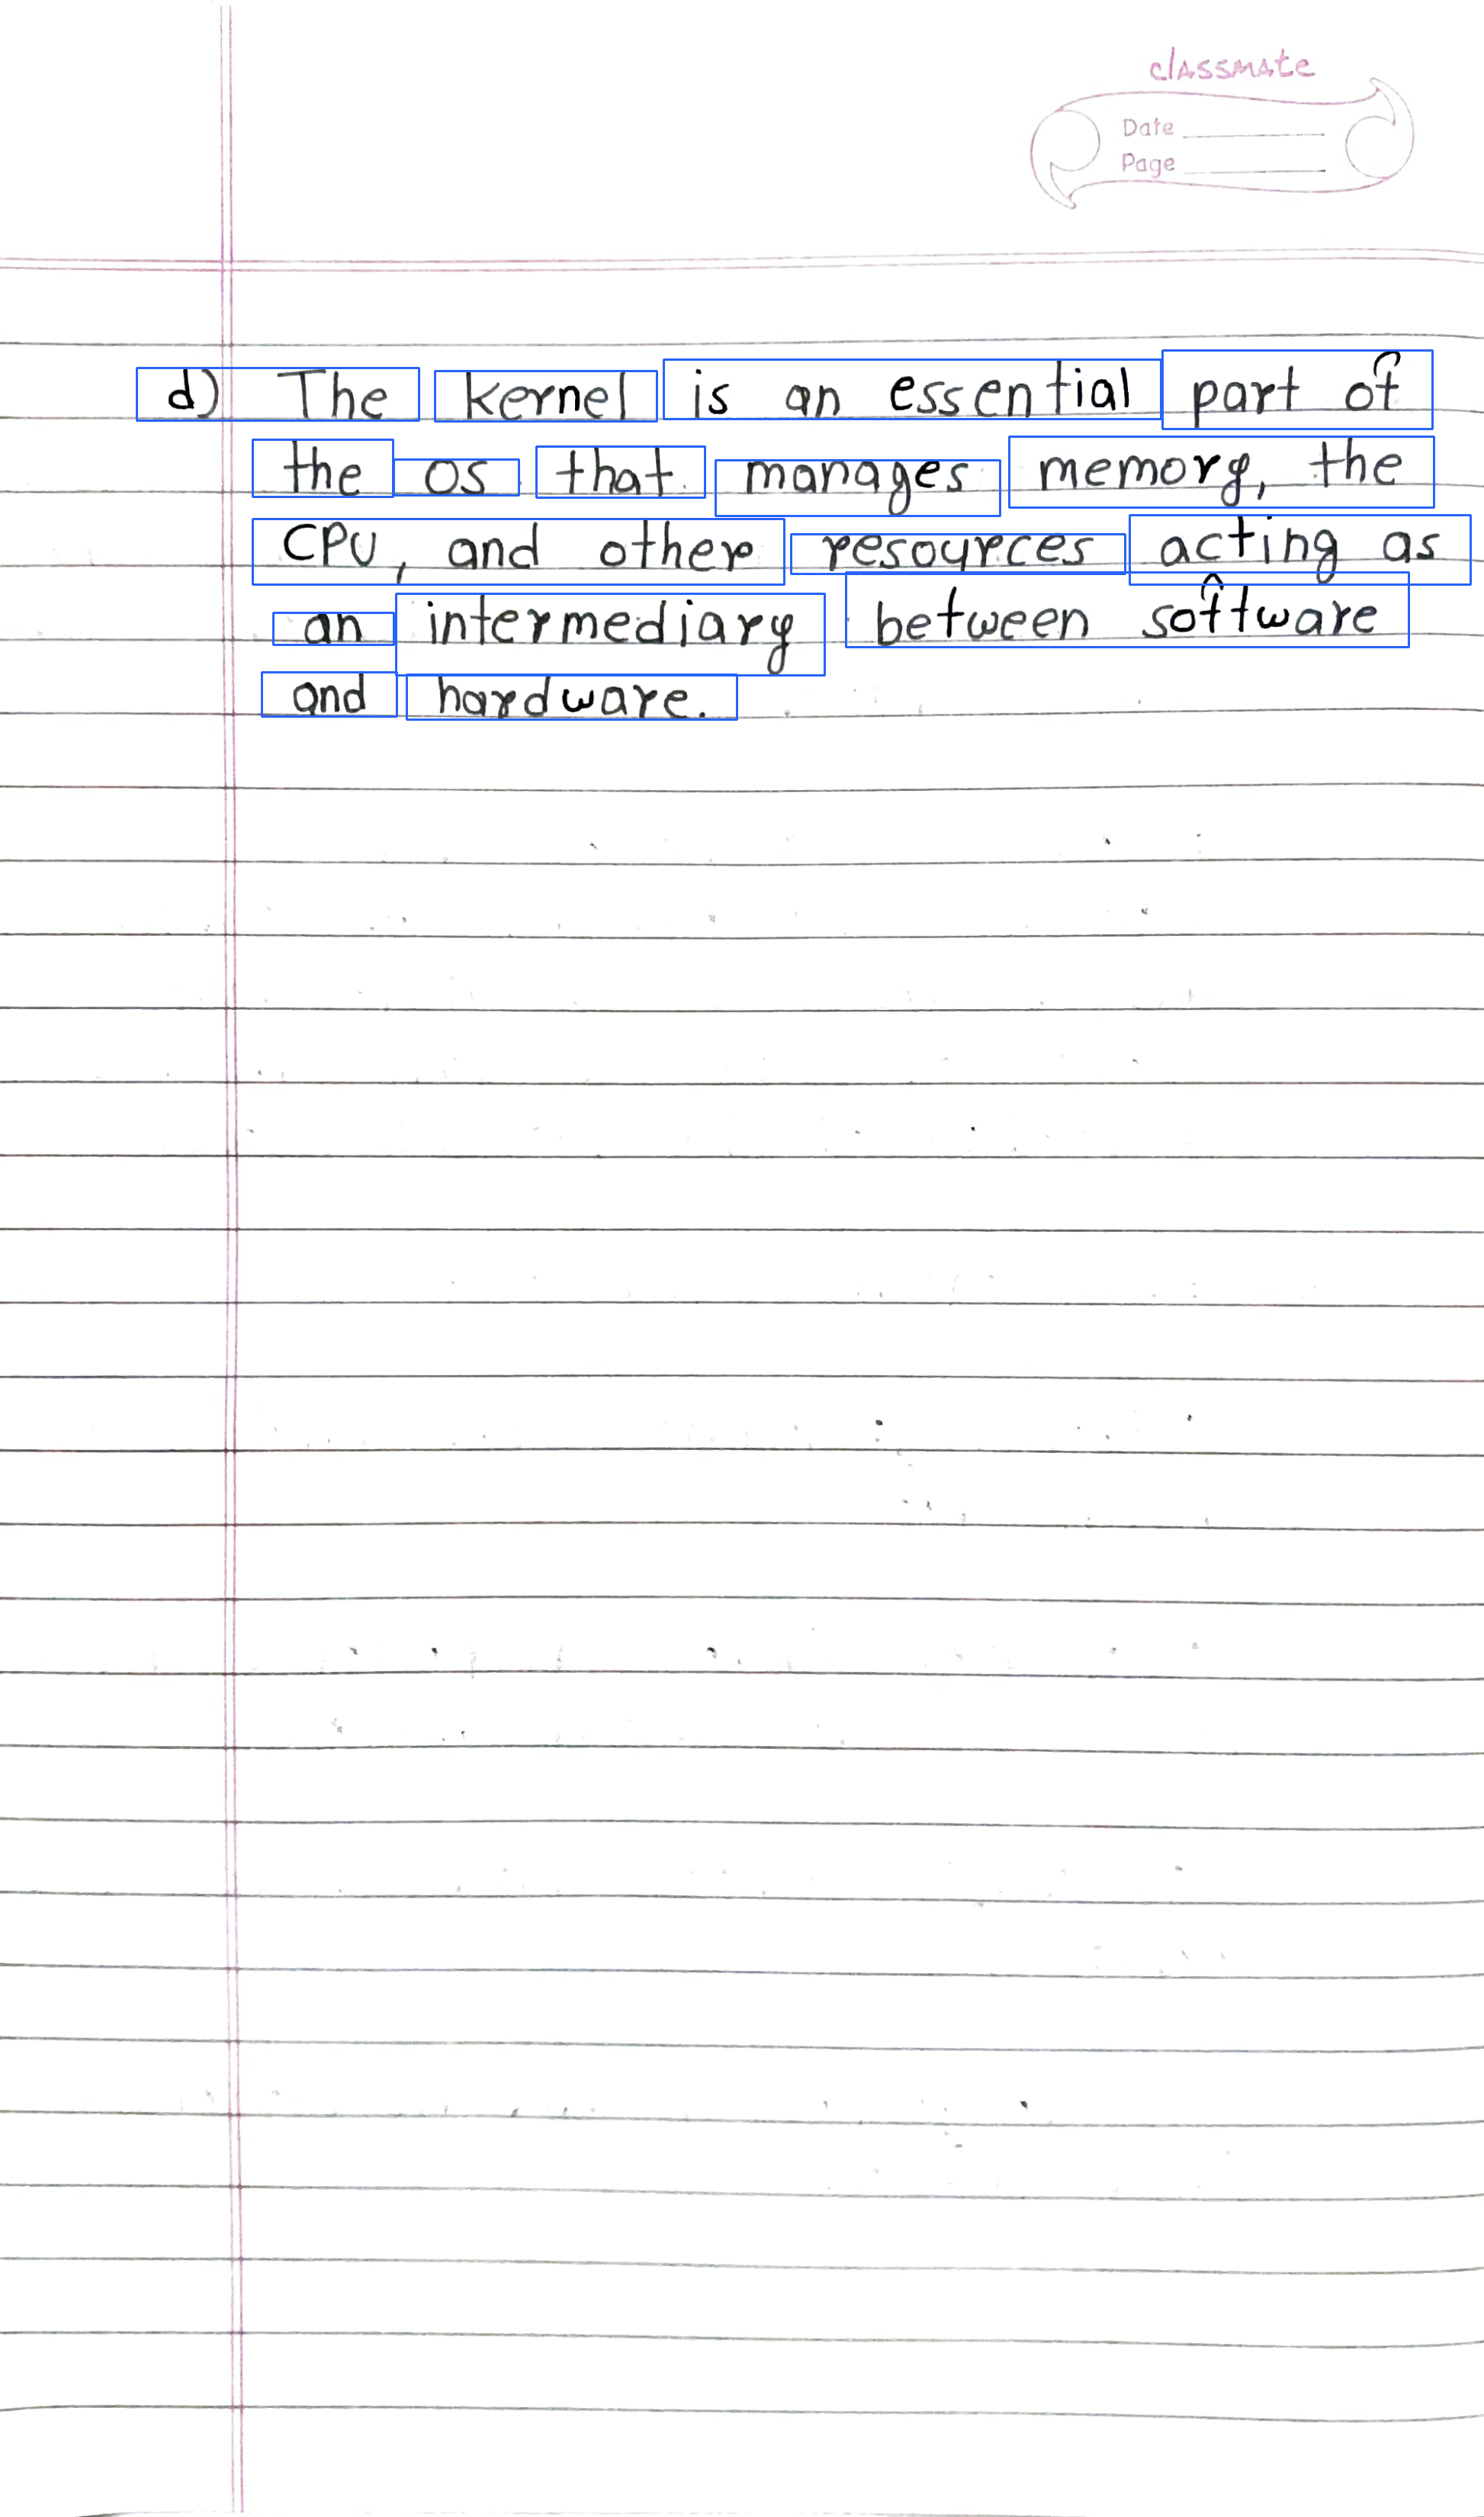 classmate
Date
Page
d) The kernel is an essential part of
the os that manages memory, the
CPU, and other resources acting as
an intermediary between software
and hardware.